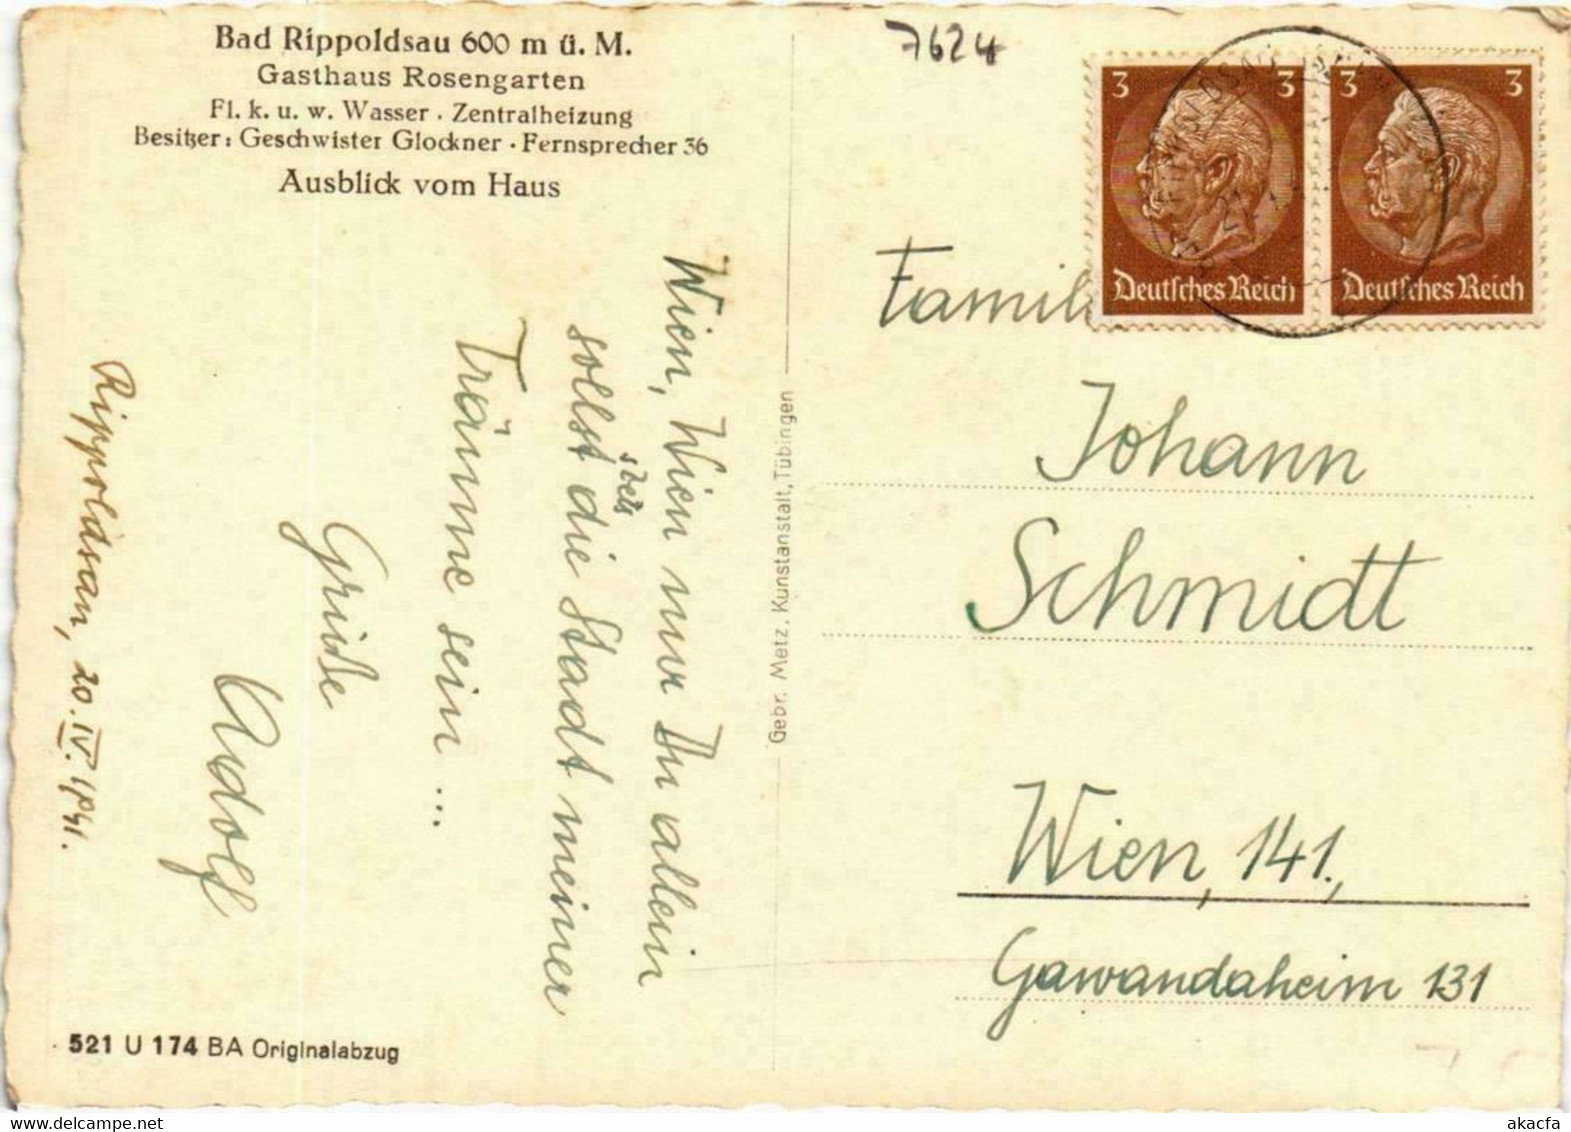 Bad Rippoldsau 600 m ü. M.
Gasthaus Rosengarten
Fl. k. u. w. Wasser · Zentralheizung
Besitzer: Geschwister Glockner · Fernsprecher 36
Ausblick vom Haus
7624
3 3
Deutsches Reich
3 3
Deutsches Reich
Wien, Wien nur Du allein
sollst stets die Stadt meiner
Träume sein ...
Grüße
Adolf
Rippoldsau, 20.IV.1941.
Gebr. Metz, Kunstanstalt, Tübingen
Famil
Johann
Schmidt
Wien, 141.,
Gawandaheim 131
521 U 174 BA Originalabzug
akacfa